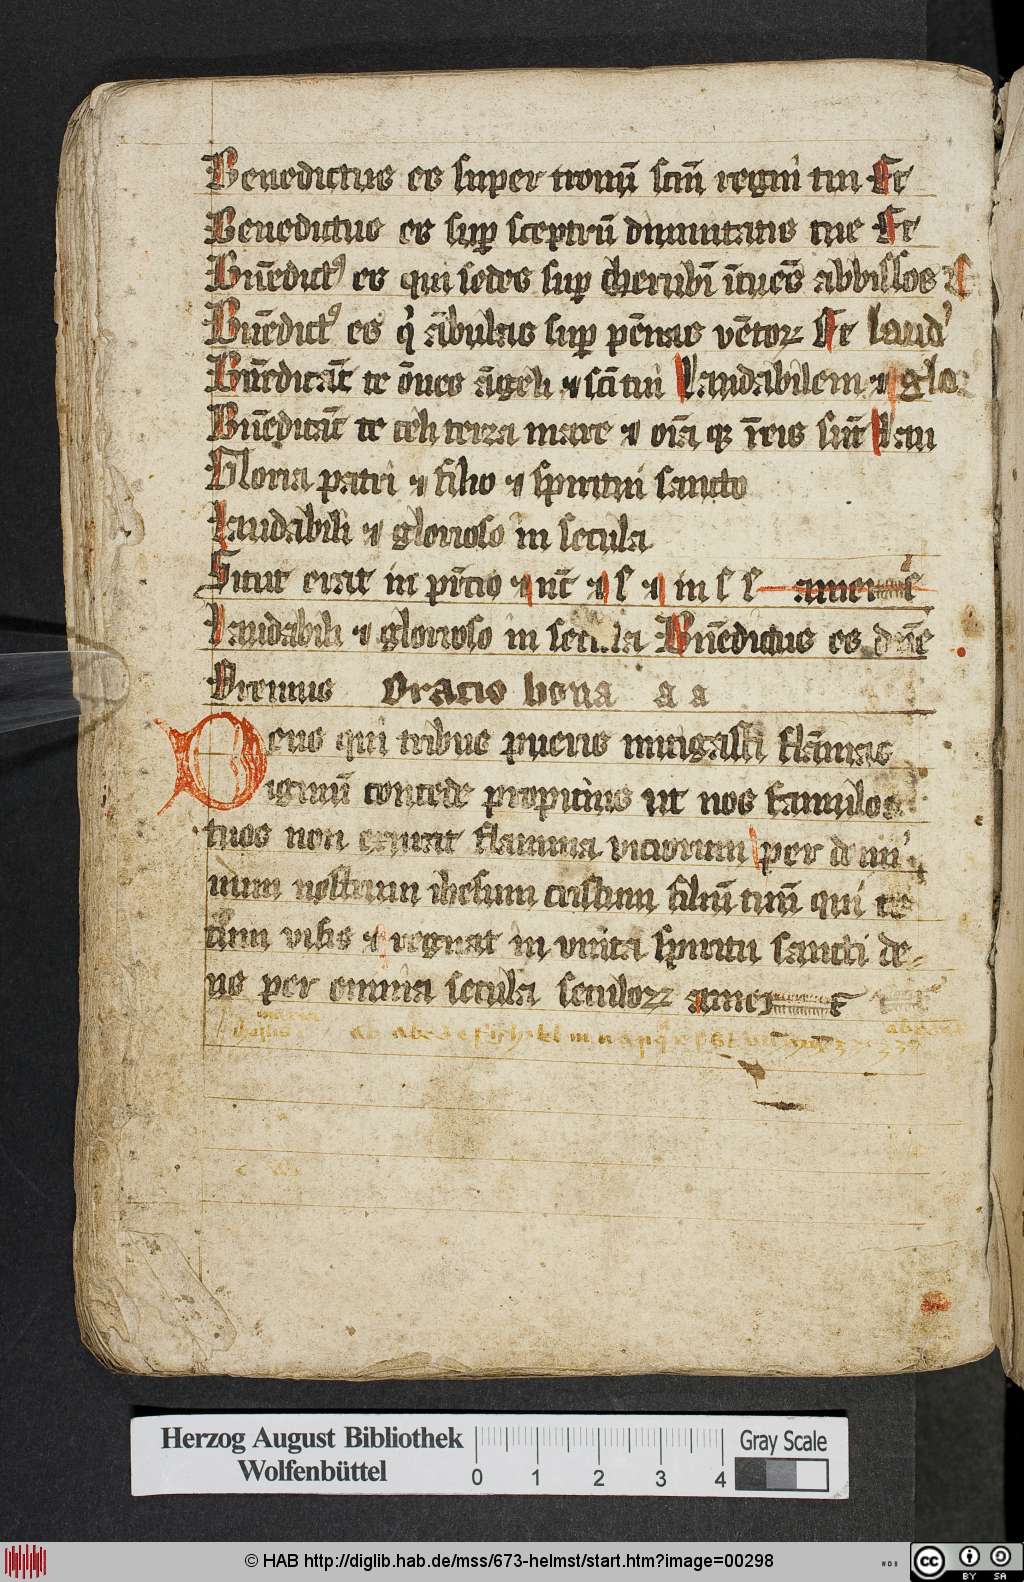 Benedictus es super tronū scm̄ regni tui Et
Benedictus es sup sceptrū diuinitatis tue Et
Bn̄edict9 es qui sedes sup cherubī ītuēs abbissos
Bn̄edict9 es q ābulas sup pēnas vētoꝝ Et laud
Bn̄edicāt te ōnes āgeli ⁊ scī tui Laudabilem ⁊ glo
Bn̄edicāt te celi terra mare ⁊ oīa q ī eis sūt Lau
Gloria patri ⁊ filio ⁊ spiritui sancto
Laudabili ⁊ glorioso in secula
Sicut erat in pn̄cio ⁊ nūc ⁊ s ⁊ in s s amen
Laudabili ⁊ glorioso in secula Bn̄edictus es dn̄e
Oremus Oracio bona a a
Deus qui tribus pueris mitigasti flāmas
ignium concede propicius ut nos famulos
tuos non exurat flamma viciorum per domi
num nostrum ihesum cristum filiū tuū qui te
cum vifis ⁊ regnat in vnita spiritu sancti de-
us per omnia secula seculoꝝ amen
Herzog August Bibliothek
Wolfenbüttel
0 1 2 3 4
Gray Scale
© HAB http://diglib.hab.de/mss/673-helmst/start.htm?image=00298
WDB
cc BY SA